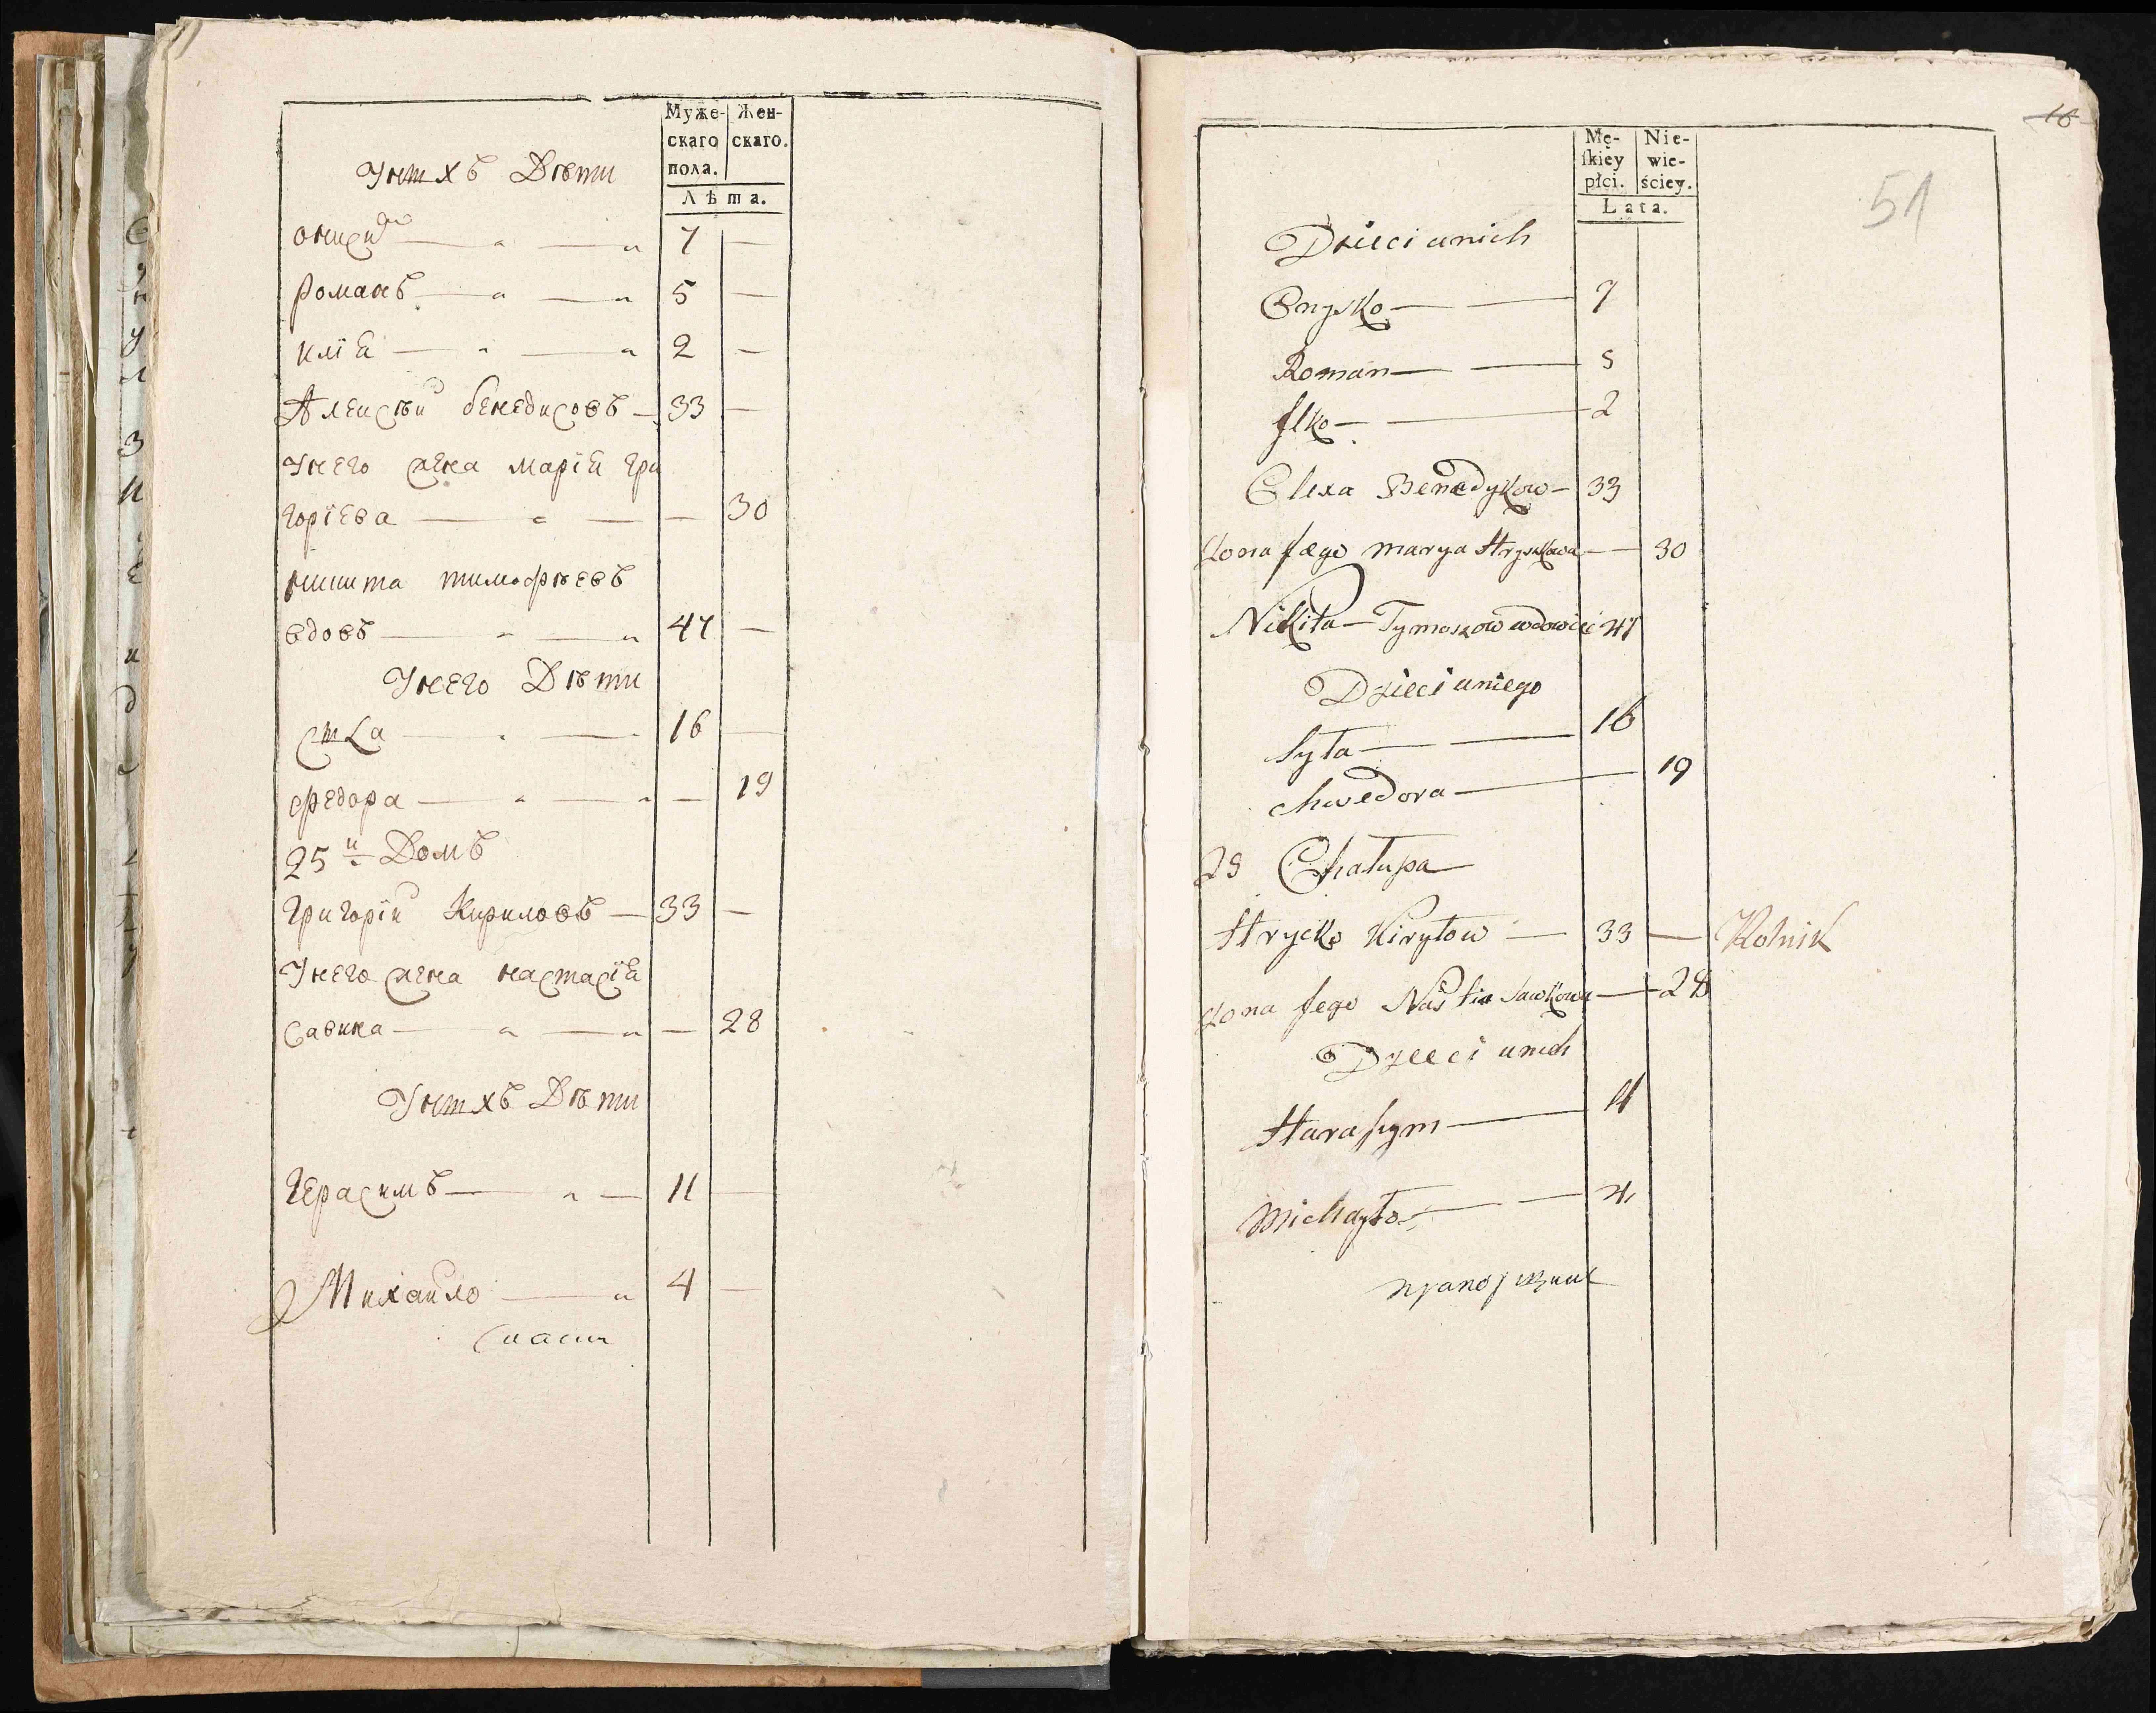 Муже- Жен-
скаго скаго.
пола.
Лѣта.
Унихъ Дѣти
Онисий 7 —
Романъ 5 —
илія 2 —
Алексѣй бенедиковъ 33 —
Унего жена марія гри
горіева — 30
никита тимофѣевъ
вдовъ 47 —
Унего Дѣти
16 —
федора — 19
25й Домъ
Григорій Кириловъ 33 —
Унего жена настасія
Савина — 28
Унихъ Дѣти
Герасимъ 11 —
Михайло 4 —
18
51
Mę- Nie-
ſkiey wie-
płci. ściey.
Lata.
Dzieci unich
Onysko 7
Roman 5
Jlko 2
Olexa Benedykow 33
Zona Jego marya Hryszkowa — 30
Nikita Tymoszow wdowiec 47
Dzieci uniego
Syła 16
Chwedora 19
25 Chałupa
Hrycko Kiryłow — 33 — Rolnik
Zona Jego Nastia Sawkowa — 28
Dzieci unich
Harasym 11
Michayło 4